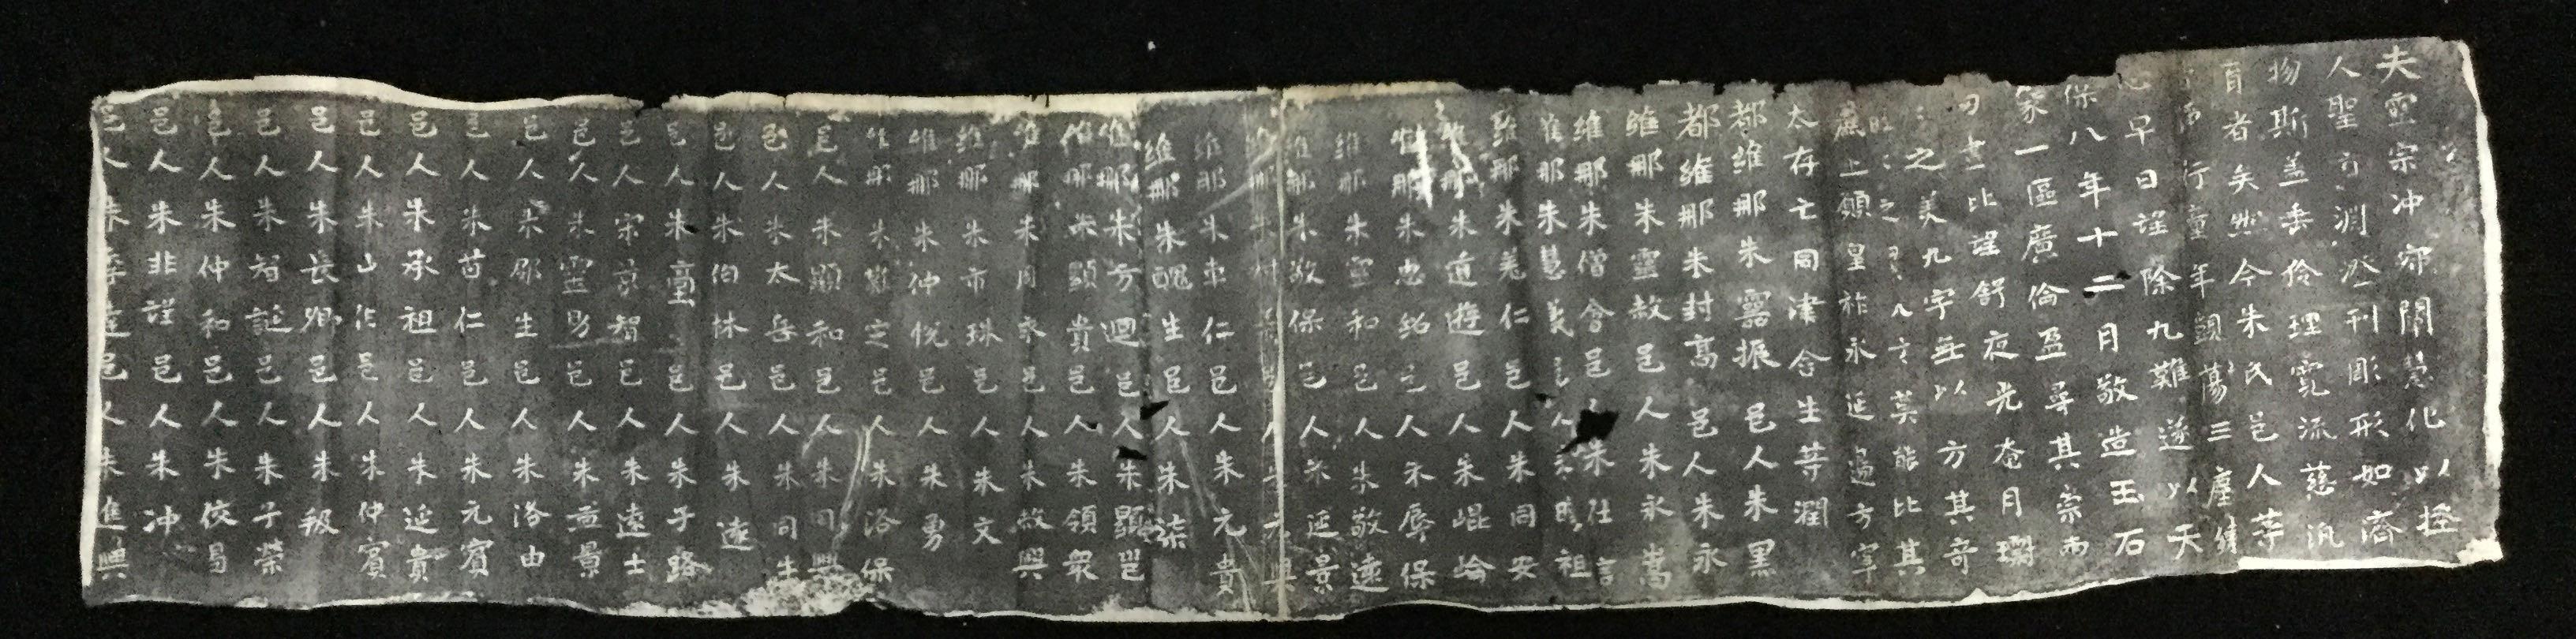 夫靈宗冲寂開慧化以控
人聖方渊登刊彫形如齊
物斯盖垂伶理霓流慈汎
育者矣然今朱氏邑人等
行童年顗蕩三塵
早日逕除九難遂以天
保八年十二月敬造玉石
象一區廣倫盈尋其崇而
比望舒夜光奄月瓓
之美九宇無以方其奇
之九方莫能比其
上願皇祚永延邊方寧
太存亡同津含生等潤
都維那朱靈振邑人朱黑
都維那朱封高邑人朱永
維那朱靈敖邑人朱永嵩
維那朱僧會邑朱仕言
維那朱慧義祖
維那朱羌仁邑人朱同安
維那朱道遊邑人朱崐崘
維那朱忠邑人朱辱保
維那朱靈和邑人朱敬遠
維那朱敬保邑人朱延景
維那朱
維那朱車仁邑人朱元貴
維那朱醜生邑人朱柒
維那朱方迴邑人朱顯邕
維那朱顯貴邑人朱領衆
維那朱同家邑人朱故興
維那朱市珠邑人朱文
維那朱仲悦邑人朱勇
維那朱邑人朱洛保
邑人朱顯和邑人朱同興
邑人朱太岳邑人朱同生
邑人朱伯林邑人朱遠
邑人朱邑人朱子路
邑人宋京智邑人朱遠士
邑人朱靈助邑人朱孟景
邑人朱郎生邑人朱洛由
邑人朱苟仁邑人朱元賓
邑人朱承祖邑人朱延貴
邑人朱山伯邑人朱仲賓
邑人朱長卿邑人朱叛
邑人朱智誕邑人朱子榮
邑人朱仲和邑人朱伏昌
邑人朱非謹邑人朱冲
邑人朱邑人朱進興